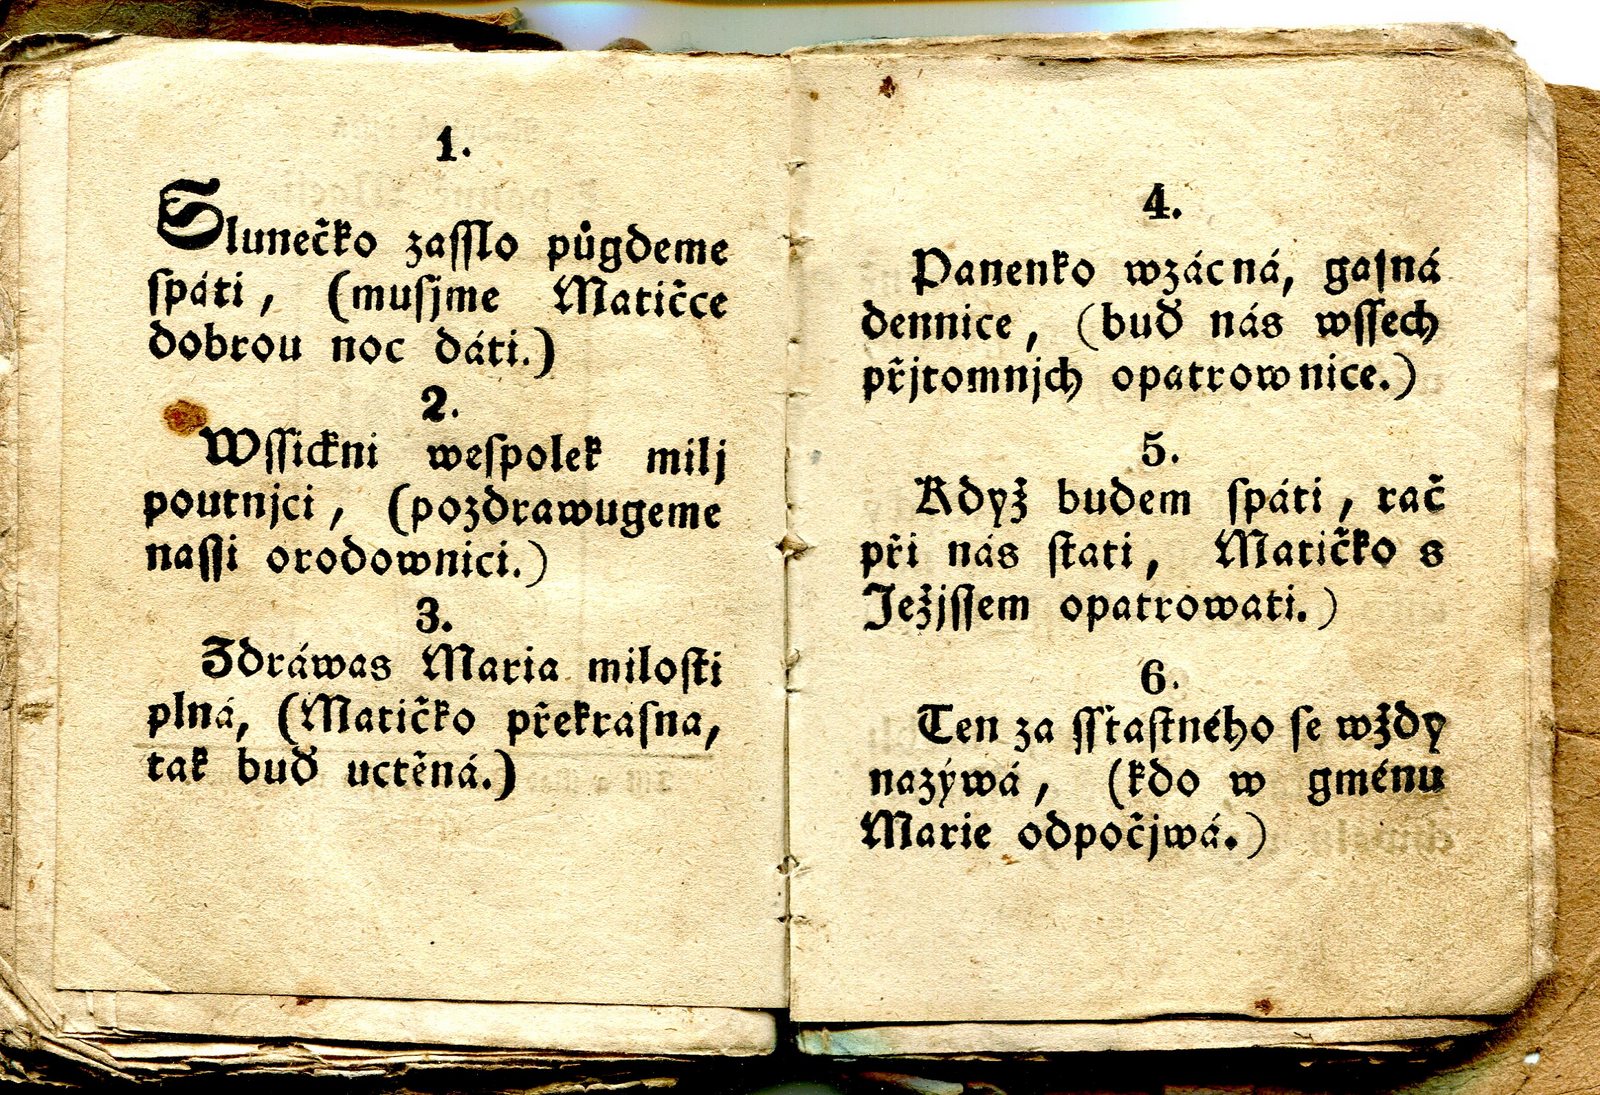 1.
Slunečko zasslo půgdeme
spáti, (musjme Matičce
dobrou noc dáti.)
2.
Wssickni wespolek milj
poutnjci, (pozdrawugeme
nassi orodownici.)
3.
Zdráwas Maria milosti
plná, (Matičko překrasna,
tak buď uctěná.)
4.
Panenko wzácná, gasná
dennice, (buď nás wssech
přjtomnjch opatrownice.)
5.
Když budem spáti, rač
při nás stati, Matičko s
Ježjssem opatrowati.)
6.
Ten za ssťastného se wždy
nazýwá, (kdo w gménu
Marie odpočjwá.)